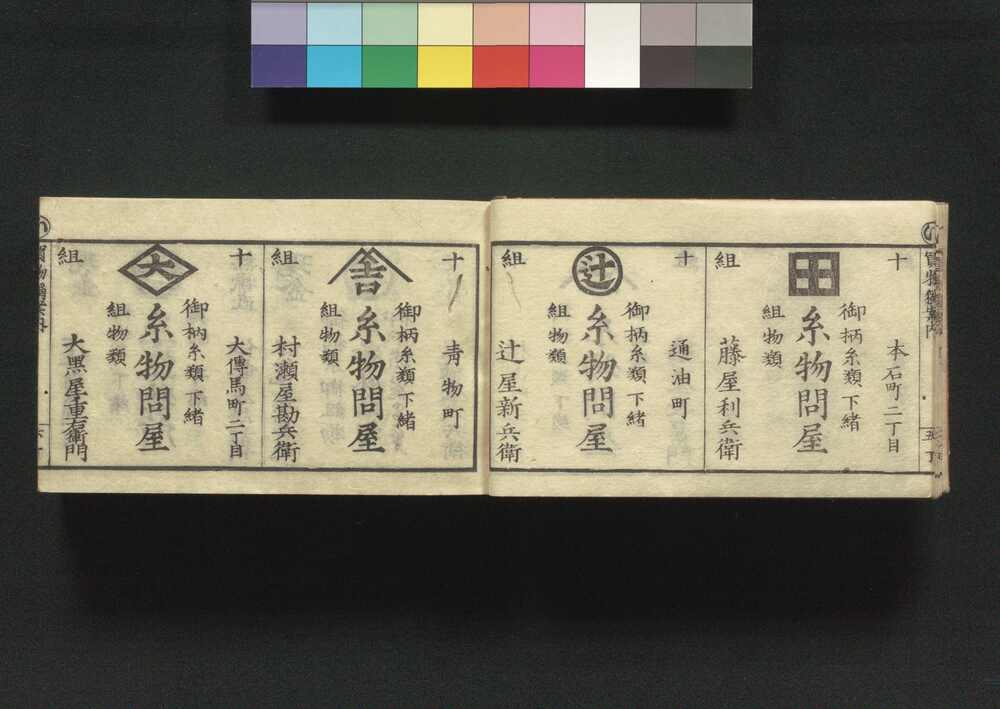 十
組
本石町二丁目
御柄糸類下緒
糸物問屋
組物類
藤屋利兵衛
十
組
通油町
御柄糸類下緒
辻
糸物問屋
組物類
辻屋新兵衛
十
組
青物町
御柄糸類下緒
吉
糸物問屋
組物類
村瀬屋勘兵衛
十
組
大傳馬町二丁目
御柄糸類下緒
大
糸物問屋
組物類
大黒屋重右衛門